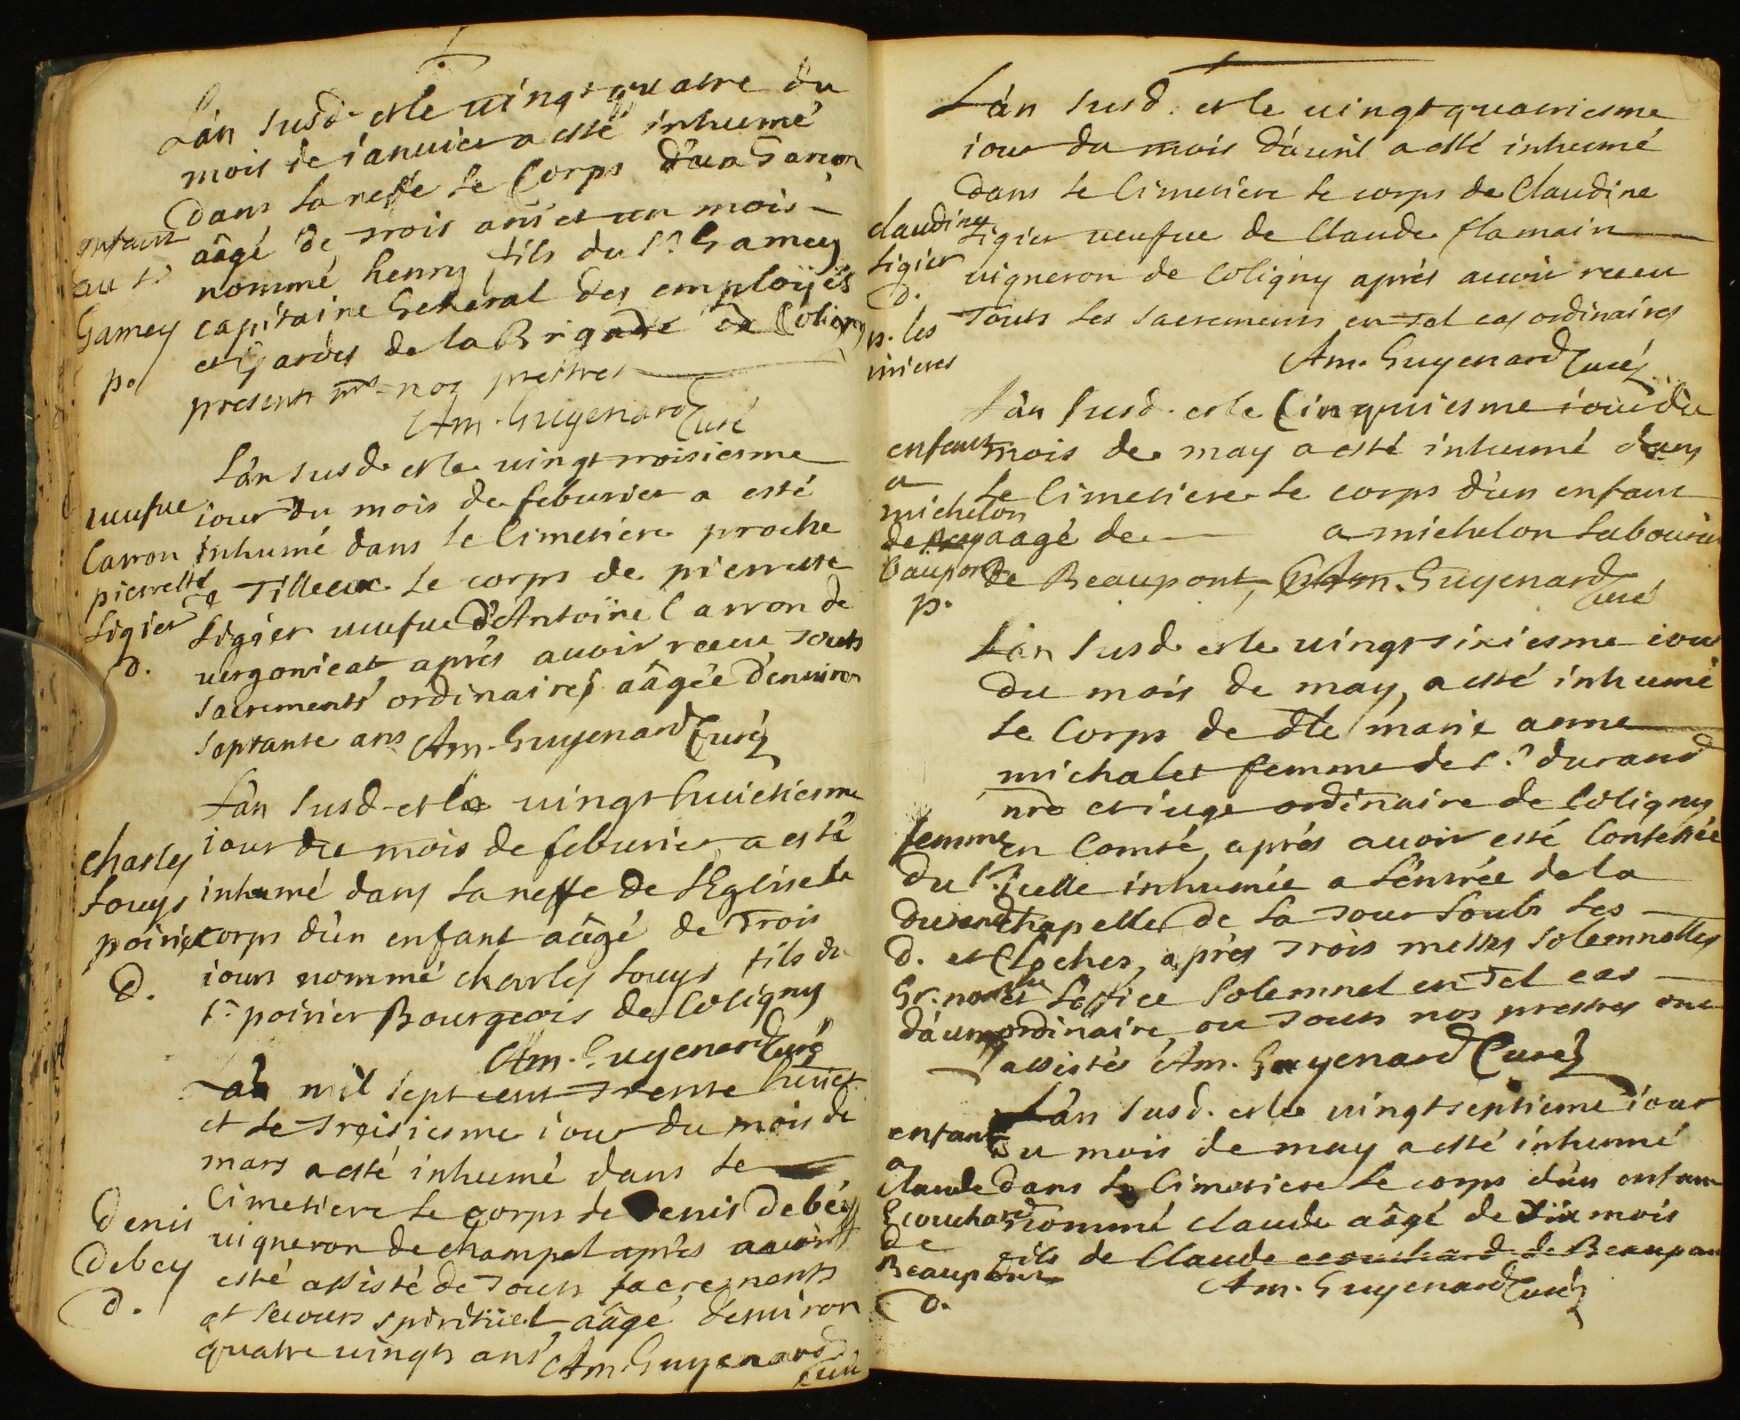 L'an susd. et le vingt quatre du
mois de ianvier a esté inhumé
dans la neffe le Corps d'un Garcon
enfant
au Sr
Gamey
p.
aâgé de trois ans et un mois
nommé henry fils du Sr. Gamey
capitaine General des employës
et Gardes de la Brigade de Coligny
presents mrs nos prestres
Am. Guyenard Curé
L'an susd. et le vingt troisiesme
veufve
Carron
pierrette
Ligier
d.
iour du mois de feburier a esté
inhumé dans le Cimetiere proche
le Tilleux le corps de pierrette
Ligier veufve d'Antoine Carron de
vergonicat, aprés avoir receu touts
sacrements ordinaires aâgée d'environ
septante ans Am. Guyenard Curé
L'an susd. et le vingt huictiesme
charles
Louys
poirier
d.
iour du mois de feburier a esté
inhumé dans la neffe de l'Eglise le
corps d'un enfant aâgé de Trois
iours nommé charles Louys fils du
Sr. poirier Bourgeois de Coligny
Am. Guyenard Curé
L'an mil sept cent trente huict
et le troisiesme iour du mois de
mars a esté inhumé dans le
Denis
Debey
d.
Cimetiere le corps de Denis Debéy
vigneron de champel aprés avoir
esté assisté de touts sacrements
et secours spirituel, aâgé d'environ
quatre vingts ans, Am. Guyenard
Curé
L'an susd. et le vingt quatriesme
iour du mois d'auril a esté inhumé
dans le Cimetiere le corps de Claudine
claudine
Ligier
d.
Ligier veufve de Claude flamain
vigneron de Coligny aprés avoir receu
touts les sacrements en tel cas ordinaires
Am. Guyenard Curé
L'an susd. et le Cinquiesme iour du
enfant
a
michelon
de
Baupont
p.
mois de may a esté inhumé dans
le Cimetiere le corps d'un enfant
aagé de a michelon laboureur
de Beaupont, Am. Guyenard
Curé
L'an susd. et le vingt sixiesme iour
du mois de may, a esté inhumé
le Corps de dlle marie anne
michalet femme de Sr. durand
nre et iuge ordinaire de Coligny
femme
du Sr.
durand
d. et
en Comté, aprés avoir esté Confessée
icelle inhumée a l'entrée de la
chapelle de la tour soubs les
Cloches, aprés trois messes solemnelles
et l'office solemnel en tel cas
ordinaire, ou touts nos prestres ont
assistés Am. Guyenard Curé
L'an susd. et le vingt septieme iour
enfant
a
claude
Ecouchard
de
Beaupont
d.
du mois de may a esté inhumé
dans le Cimetiere le corps d'un enfant
nommé claude aâgé de dix mois
fils de Claude ecouchard de Beaupont
Am. Guyenard Curé